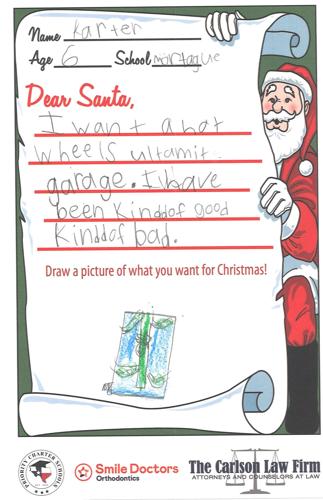 Name Karter
Age 6 School mortague
Dear Santa,
I want a hot
wheels ultamit
garage. I have
been Kinddof good
Kinddof bad.
Draw a picture of what you want for Christmas!
PRIORITY CHARTER SCHOOLS
Smile Doctors
Orthodontics
The Carlson Law Firm
ATTORNEYS AND COUNSELORS AT LAW